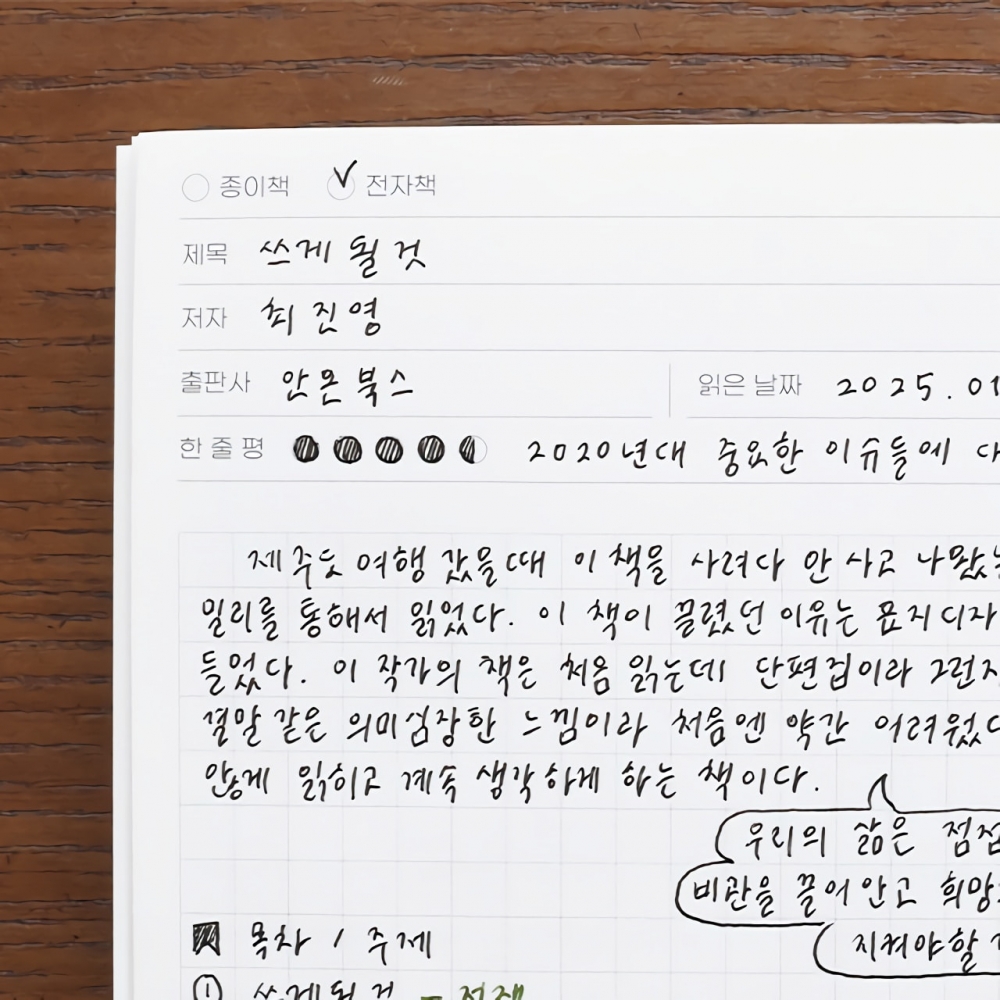 종이책 전자책
제목 쓰게 될 것
저자 최진영
출판사 안온북스 읽은 날짜 2025.01
한 줄 평 2020년대 중요한 이슈들에
제주도 여행 갔을때 이 책을 사려다 안 사고
밀리를 통해서 읽었다. 이 책이 끌렸던 이유는 표지디자
들었다. 이 작가의 책은 처음 읽는데 단편집이라 그런지
결말 같은 의미심장한 느낌이라 처음엔 약간 어려웠
읽히고 계속 생각하게 하는 책이다.
우리의 삶은 점점
비관을 끌어안고 희망
지켜야할
목차 / 주제
① 쓰게 될 것 - 전쟁